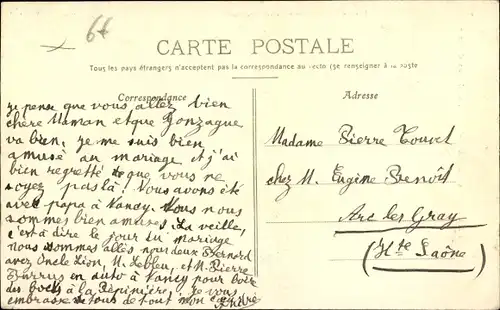 6f
CARTE POSTALE
Tous les pays étrangers n'acceptent pas la correspondance au recto (se renseigner à la poste
Correspondance
Je pense que vous allez bien
chère Maman et que Gonzague
va bien, je me suis bien
amusé au mariage et j'ai
bien regretté que vous ne
soyez pas là! Nous avons été
avec papa à Nancy. Nous nous
sommes bien amusés. La veille,
c'est à dire le jour du mariage
nous sommes allés nous deux Bernard
avec Oncle Lion, M. Lebleu, et M. Pierre
Barrus en auto à Nancy pour boire
des bocks à la Pépinière; je vous
embrasse de tous de tout mon cœur André
Adresse
Madame Pierre Touvet
chez M. Eugène Benoît
Arc les Gray
(Hte Saône)